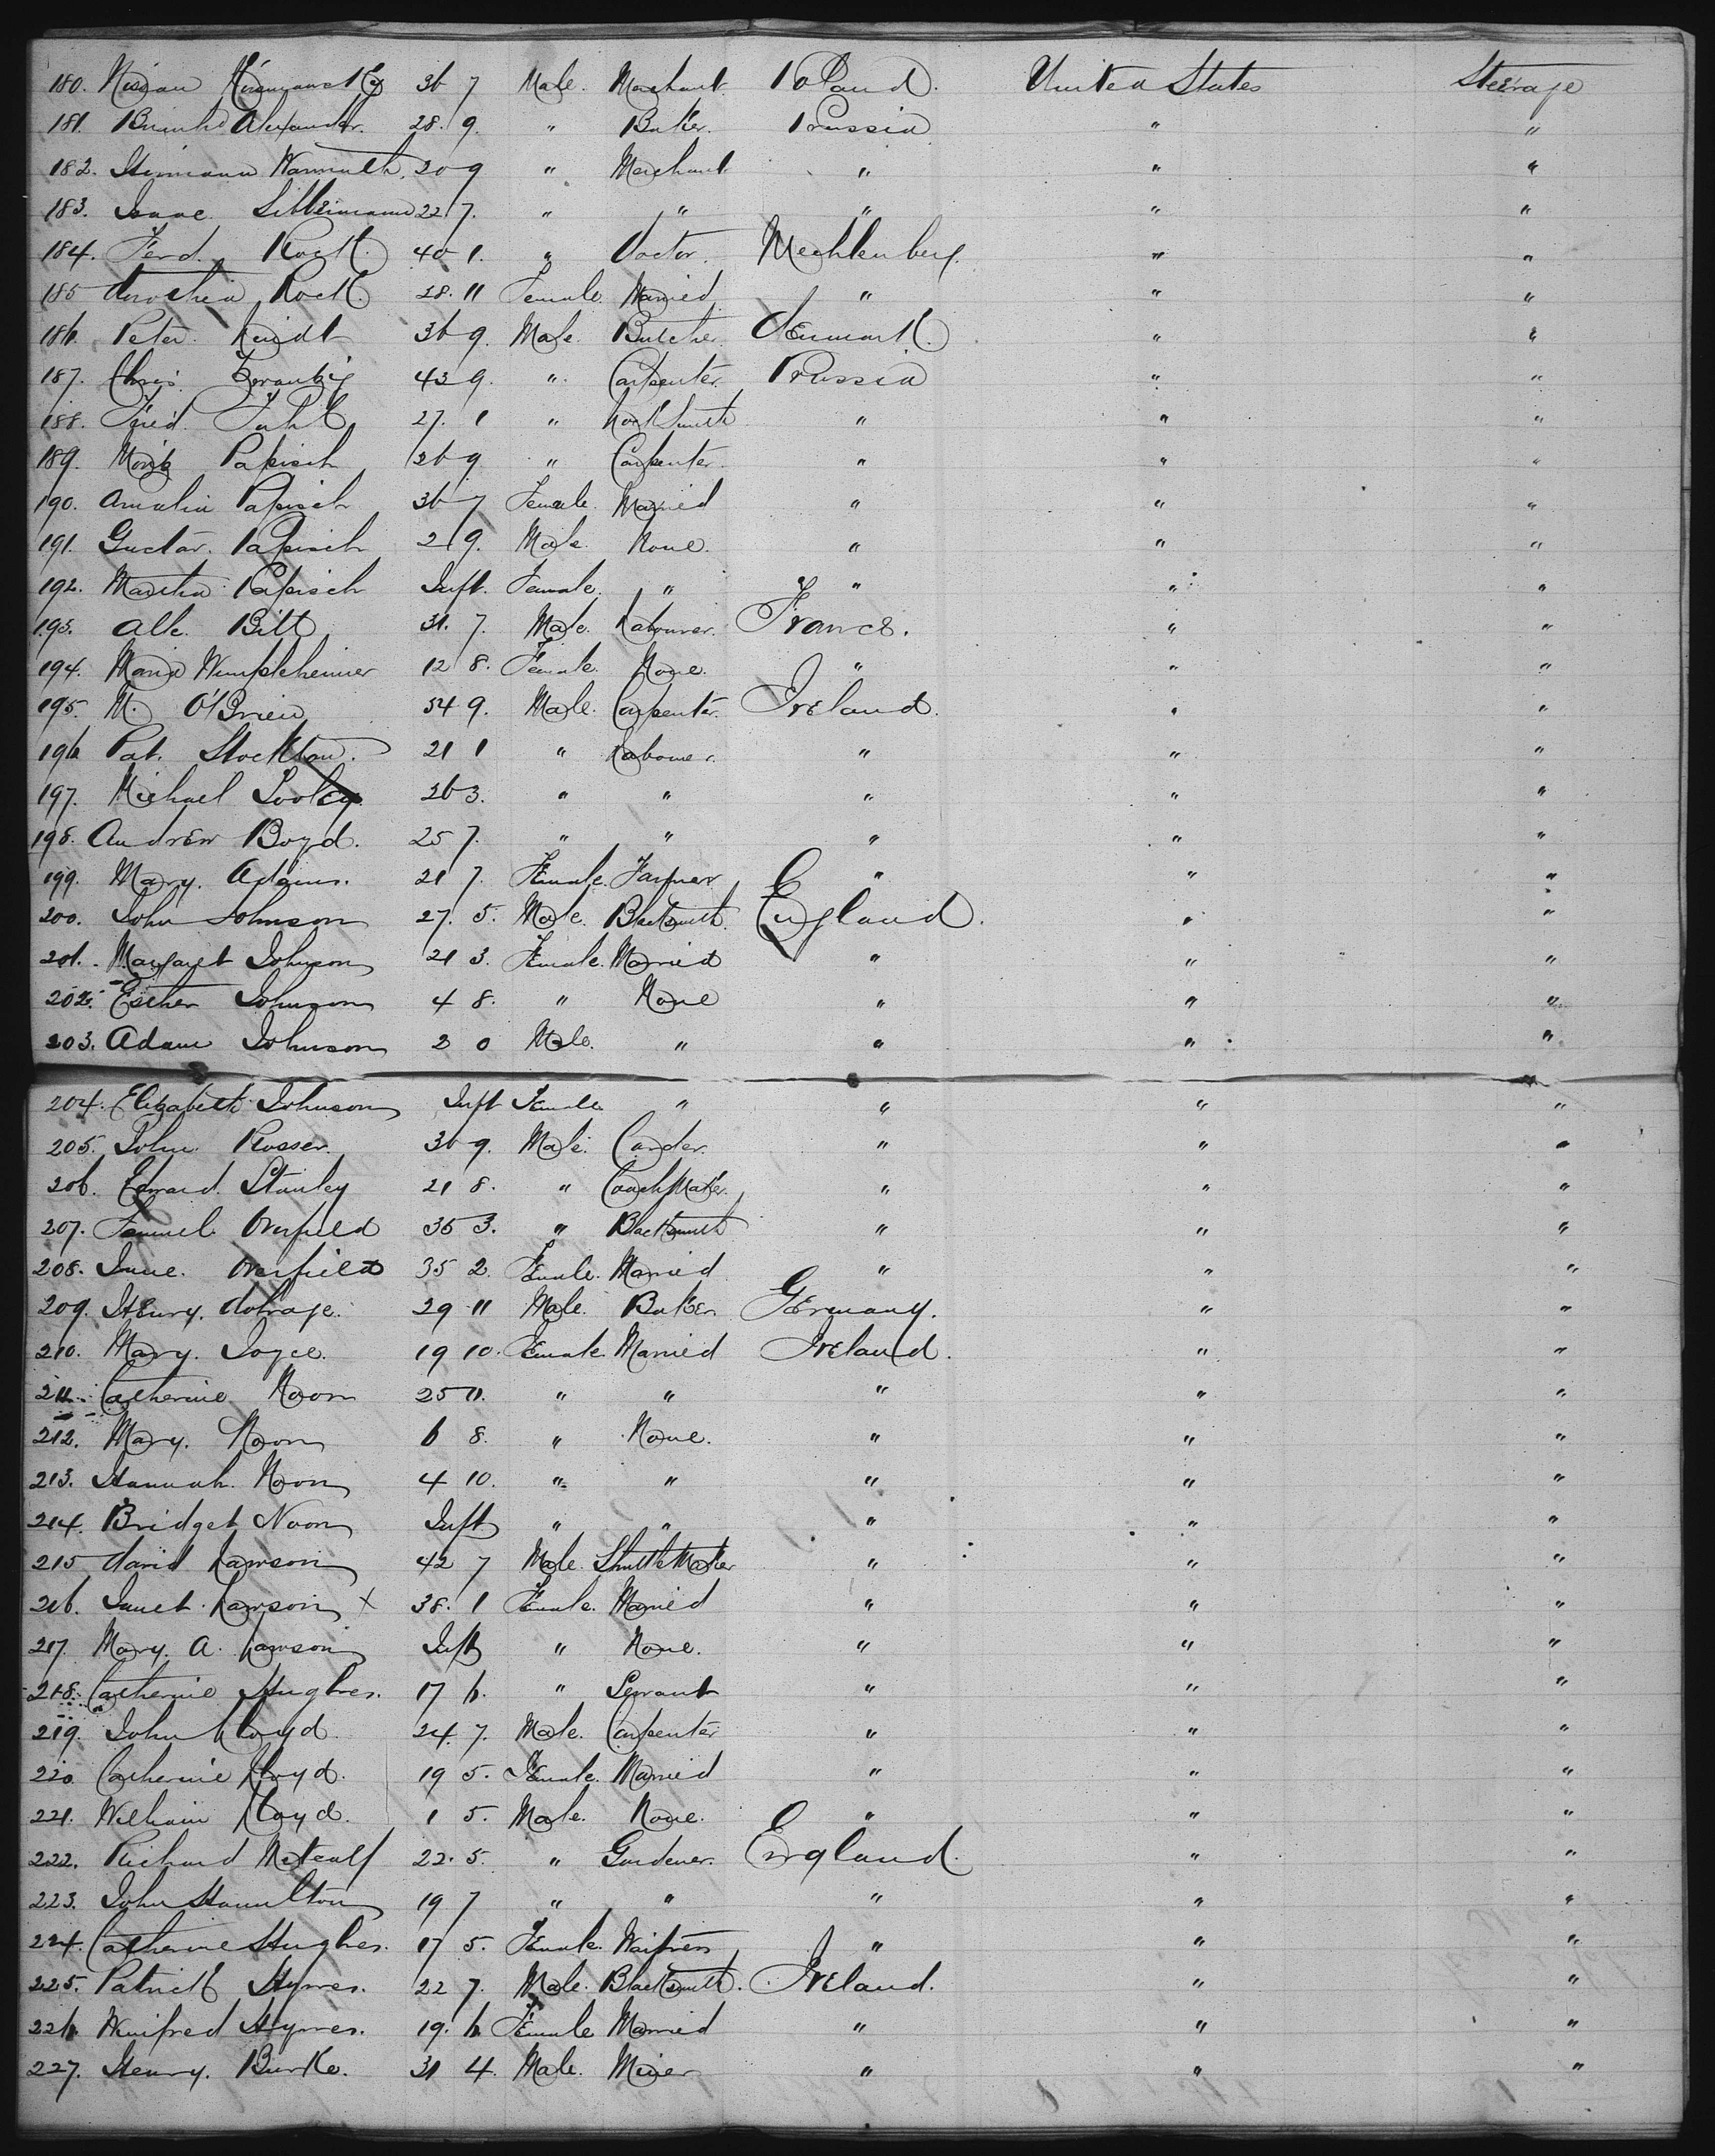 180. Male. Merchant Poland. United States Steerage
181. Alexander. 28. 9. " Baker. Prussia " "
182. Hermann Warmuth. 20 9 " Merchant " " "
183. Isaac Silbermann 22 7. " " " " "
184. Ferd. Rock. 40 1. " Doctor. Mechlenberg. " "
185 Dorothea Rock. 28. 11 Female. Married " " "
186. Peter 36 9. Male. Butcher. Denmark. " "
187. Chris. 42 9. " Carpenter. Prussia " "
188. Fried. 27. 1 " LockSmith " " "
189. Moritz Papisch 26 9 " Carpenter. " " "
190. Amalia Papisch 36 7 Female. Married " " "
191. Gustav. Papisch 2 9. Male. None. " " "
192. Martha Papisch Inft. Female. " " " "
193. Alb. Bilt 31. 7. Male. Labourer. France. " "
194. Maria Wimpfeheimer 12 8. Female. None. " " "
195. M. O'Brien 54 9. Male. Carpenter. Ireland. " "
196 Pat. Stockton. 21 1 " Labourer. " " "
197. Michael Sooley. 26 3. " " " " "
198. Andrew Boyd. 25 7. " " " " "
199. Mary. Adams. 21 7. Female. " " "
200. John Johnson 27. 5. Male. Blacksmith. England. " "
201. Margaret Johnson 21 3. Female. Married " " "
202. Esther Johnson 4 8. " None " " "
203. Adam Johnson 2 0 Male. " " " "
204. Elizabeth Johnson Inft Female " " " "
205. John Rosser. 30 9. Male. Carder. " " "
206. Edward. Stanley 21 8. " CoachMaker. " " "
207. Samuel. Overfield 35 3. " Blacksmith " " "
208. Jane. Overfield 35 2. Female. Married " " "
209. Henry. Dohrage. 29 11 Male. Baker Germany. " "
210. Mary. Joyce. 19 10. Female Married Ireland. " "
211. Catherine Noon 25 11. " " " " "
212. Mary. Noon 6 8. " None. " " "
213. Hannah. Noon 4 10. " " " " "
214. Bridget Noon Inft " " " " "
215 David Lawson 42 7 Male. ShuttleMaker " " "
216. Janet. Lawson X 38. 1 Female. Married " " "
217. Mary. A. Lawson Inft " None. " " "
218. Catherine Hughes. 17 6. " Servant " " "
219. John Lloyd. 24. 7. Male. Carpenter " " "
220. Catherine Lloyd. 19 5. Female. Married " " "
221. William Lloyd. 1 5. Male. None. " " "
222. Richard Metcalf 22. 5. " Gardener. England. " "
223. John Hamilton 19 7 " " " " "
224. Catherine Hughes. 17 5. Female. Waitress " " "
225. Patrick Hymes. 22 7. Male. Blacksmith. Ireland. " "
226 Winifred Hymes. 19. 6 Female Married " " "
227. Henry. Burke. 31 4. Male. Miner " " "